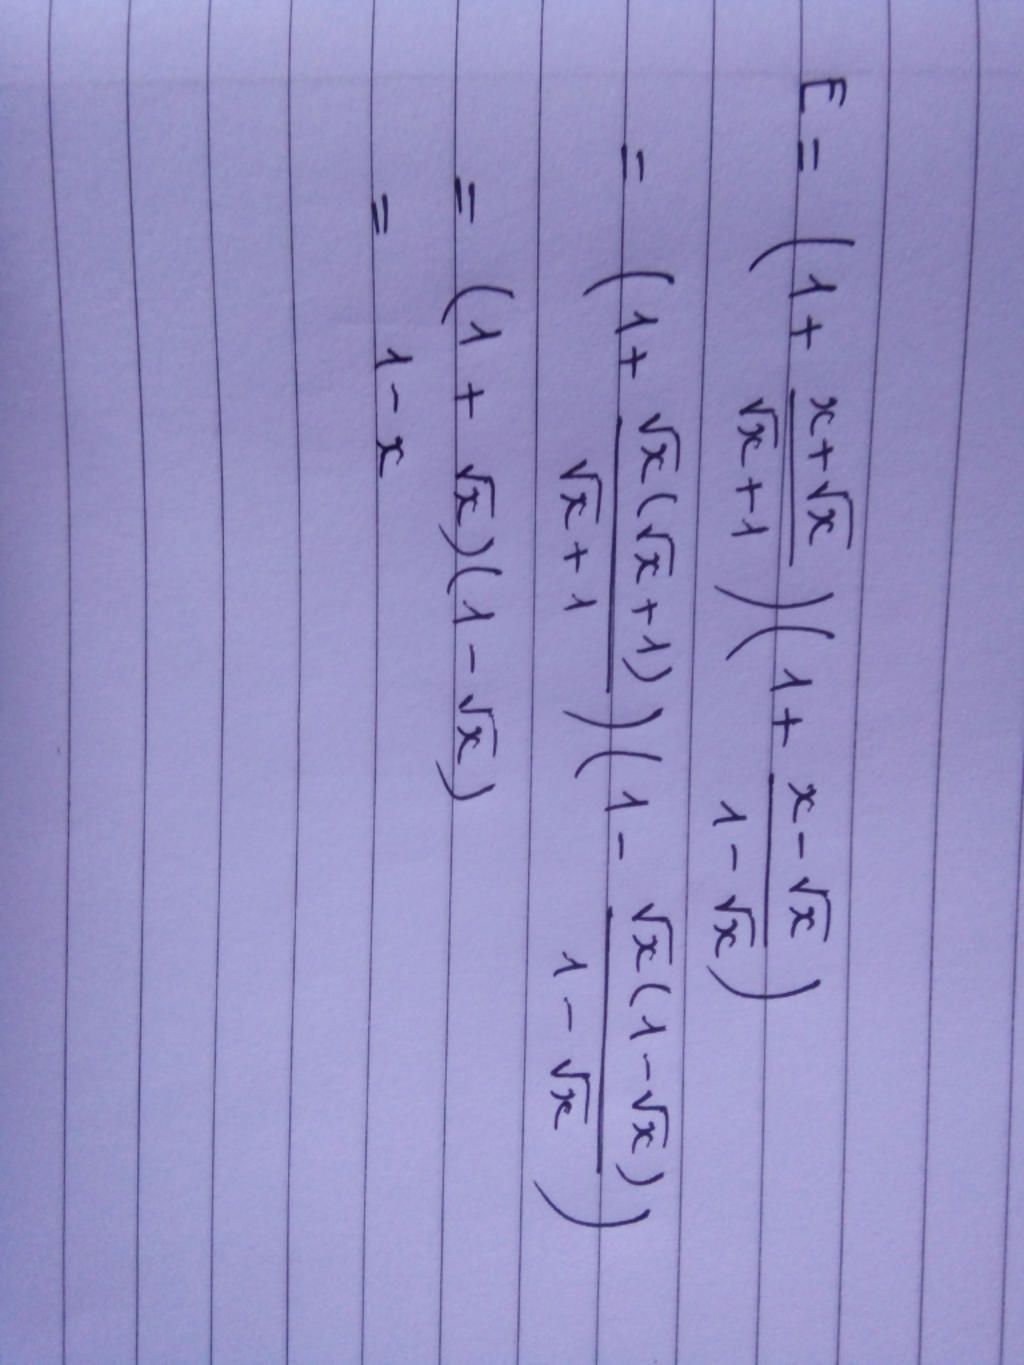 E = (1 + \frac{x+\sqrt{x}}{\sqrt{x}+1})(1 + \frac{x-\sqrt{x}}{1-\sqrt{x}})
= (1 + \frac{\sqrt{x}(\sqrt{x}+1)}{\sqrt{x}+1})(1 - \frac{\sqrt{x}(1-\sqrt{x})}{1-\sqrt{x}})
= (1 + \sqrt{x})(1 - \sqrt{x})
= 1 - x